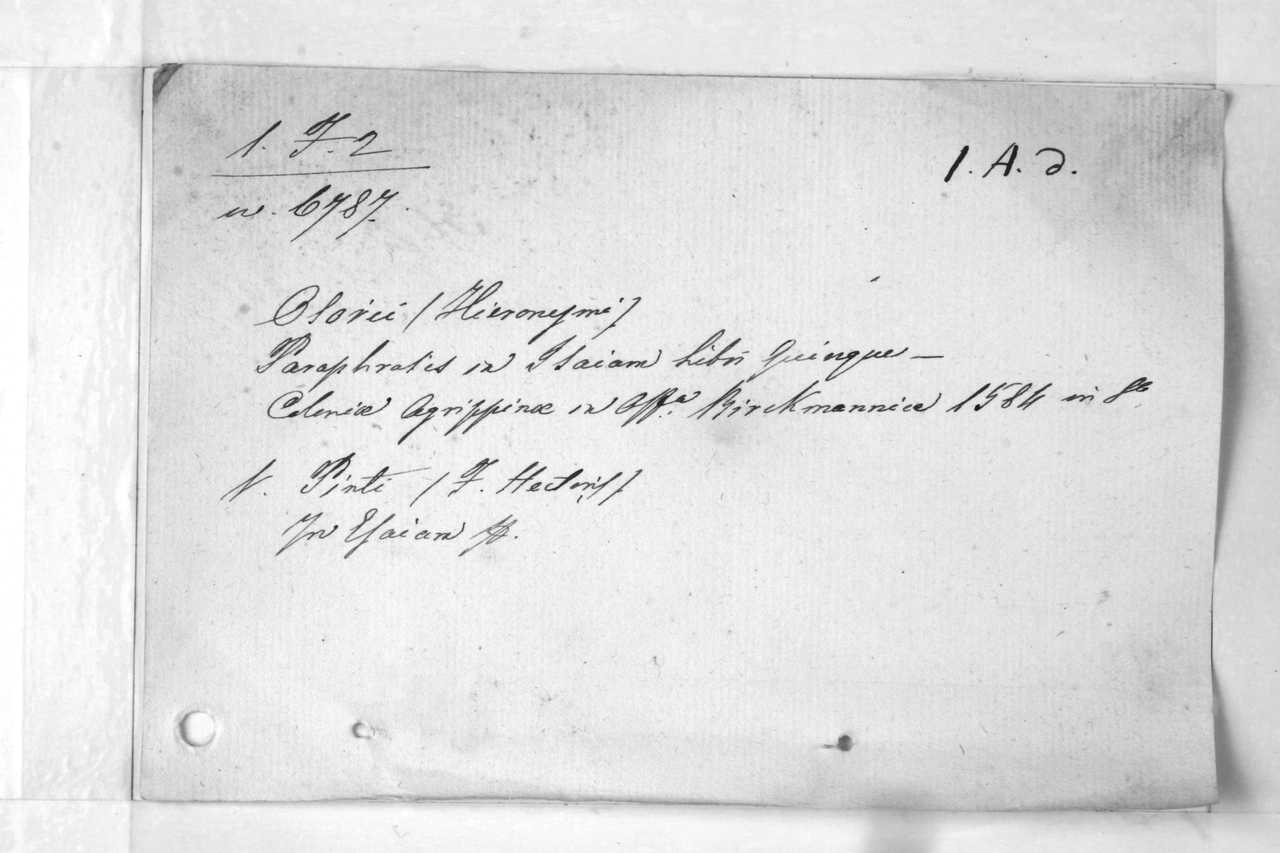 1. F. 2
1. A. d.
nr. 6787.
Osorii (Hieronymi)
Paraphrasis in Isaiam Libri Quinque —
Coloniæ Agrippinæ in Offa. Birckmannica 1584 in 8o
V. Pinti (F. Hectoris)
In Esaiam